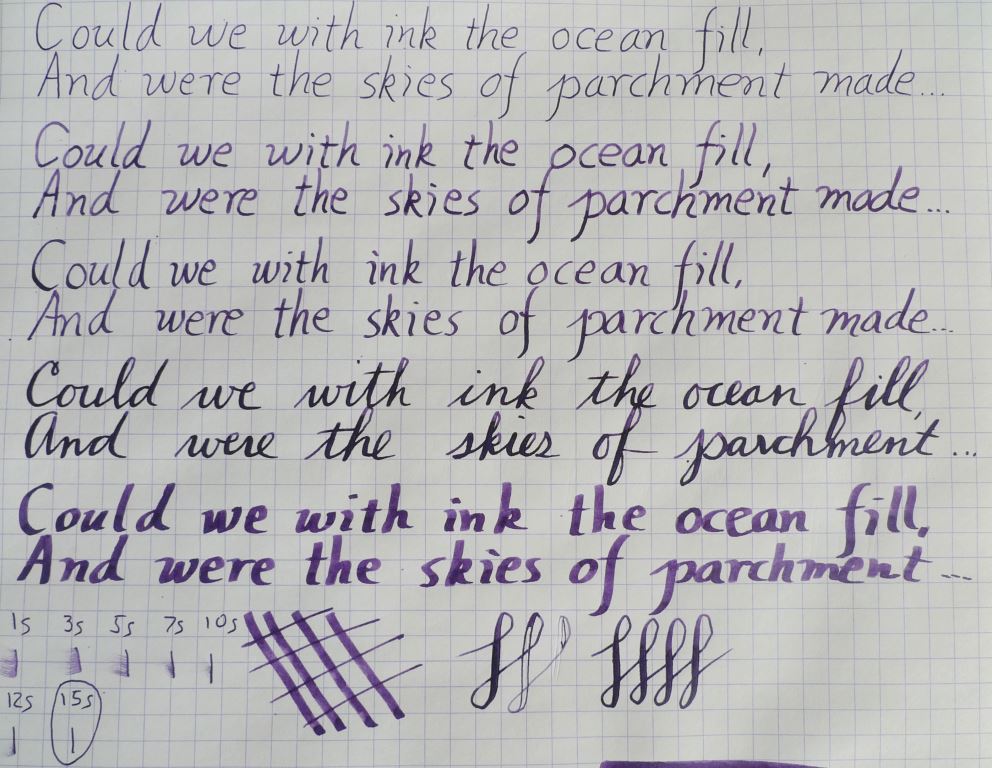 Could we with ink the ocean fill,
And were the skies of parchment made...
Could we with ink the ocean fill,
And were the skies of parchment made...
Could we with ink the ocean fill,
And were the skies of parchment made...
Could we with ink the ocean fill,
And were the skies of parchment...
Could we with ink the ocean fill,
And were the skies of parchment...
1s 3s 5s 7s 10s
12s 15s